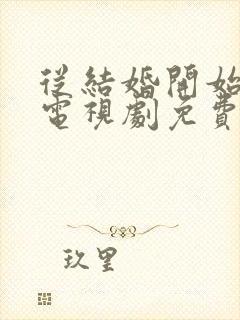 從結婚開始
電視劇免費
玖里